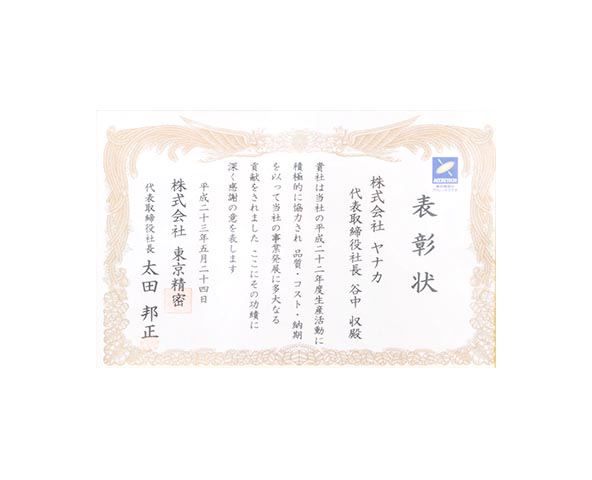 表彰状
株式会社 ヤナカ
代表取締役社長 谷中 収殿
貴社は当社の平成二十二年度生産活動に
積極的に協力され 品質・コスト・納期
を以って当社の事業発展に多大なる
貢献をされました ここにその功績に
深く感謝の意を表します
平成二十三年五月二十四日
株式会社 東京精密
代表取締役社長 太田 邦正